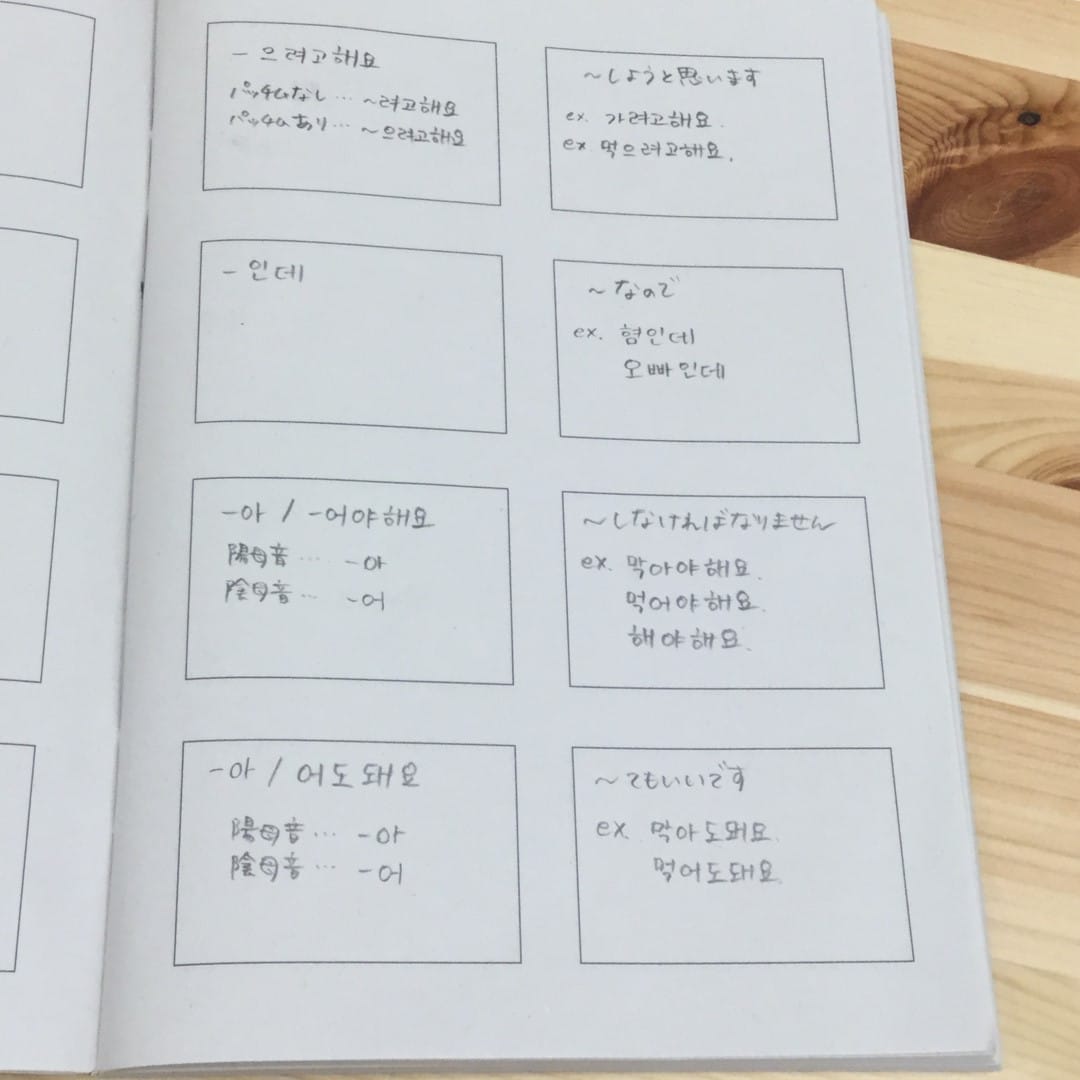 - 으려고해요
パッチムなし… ~려고해요
パッチムあり… ~으려고해요
~しようと思います
ex. 가려고해요.
ex 먹으려고해요.
- 인데
~なので
ex. 혐인데
오빠인데
-아 / -어야해요
陽母音… -아
陰母音… -어
~しなければなりません
ex. 막아야해요.
먹어야해요.
해야해요.
-아 / 어도돼요
陽母音… -아
陰母音… -어
~てもいいです
ex 막아도돼요.
먹어도돼요.